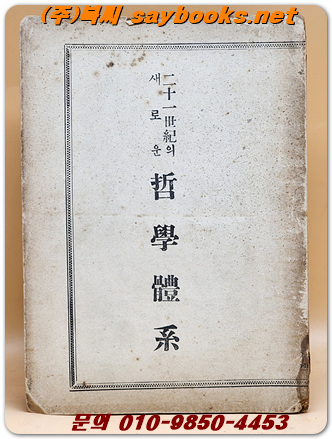 (주)북씨 saybooks.net
二十一世紀의
새로운
哲學體系
문의 010-9850-4453